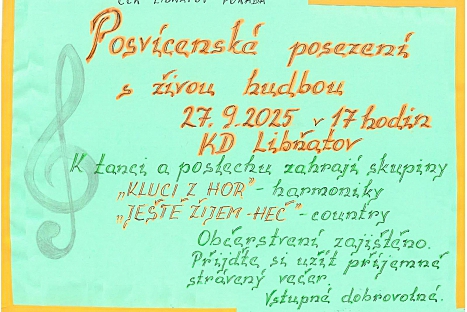 ČČK LIBŇATOV POŘÁDÁ
Posvícenské posezení
s živou hudbou
27.9.2025 v 17 hodin
KD Libňatov
K tanci a poslechu zahrají skupiny
„KLUCI Z HOR" - harmoniky
„JEŠTĚ ŽIJEM - HEČ" - country
Občerstvení zajištěno.
Přijďte si užít příjemně
strávený večer
Vstupné dobrovolné.